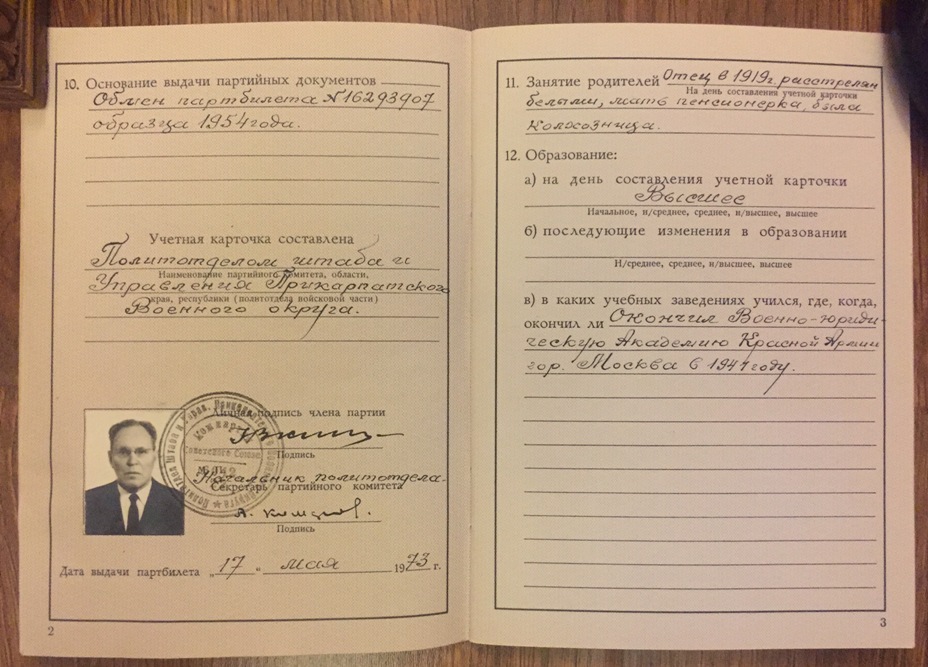 10. Основание выдачи партийных документов
Обмен партбилета №16293907
образца 1954 года.
Учетная карточка составлена
Политотделом штаба и
Наименование партийного комитета, области,
Управления Прикарпатского
края, республики (политотдела войсковой части)
Военного округа.
Личная подпись члена партии
Подпись
Начальник политотдела
Секретарь партийного комитета
Подпись
Дата выдачи партбилета „17“ мая 1973 г.
2
11. Занятие родителей Отец в 1919г. расстрелян
На день составления учетной карточки
белыми, мать пенсионерка, была
колхозница.
12. Образование:
а) на день составления учетной карточки
Высшее
Начальное, н/среднее, среднее, н/высшее, высшее
б) последующие изменения в образовании
Н/среднее, среднее, н/высшее, высшее
в) в каких учебных заведениях учился, где, когда,
окончил ли Окончил Военно-юриди-
ческую Академию Красной Армии
гор. Москва в году.
3